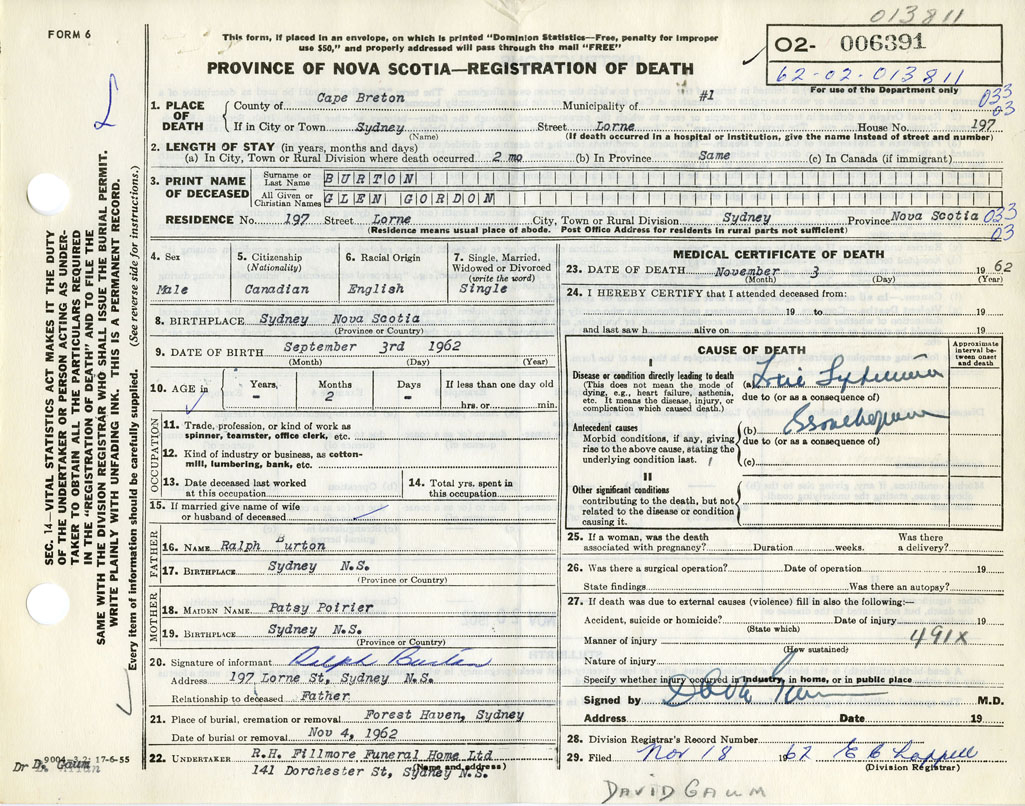 013811
FORM 6
This form, if placed in an envelope, on which is printed "Dominion Statistics—Free, penalty for improper
use $50," and properly addressed will pass through the mail "FREE"
O2- 006391
62-02-013811
For use of the Department only
PROVINCE OF NOVA SCOTIA—REGISTRATION OF DEATH
SEC. 14—VITAL STATISTICS ACT MAKES IT THE DUTY
OF THE UNDERTAKER OR PERSON ACTING AS UNDER-
TAKER TO OBTAIN ALL THE PARTICULARS REQUIRED
IN THE "REGISTRATION OF DEATH" AND TO FILE THE
SAME WITH THE DIVISION REGISTRAR WHO SHALL ISSUE THE BURIAL PERMIT.
WRITE PLAINLY WITH UNFADING INK. THIS IS A PERMANENT RECORD.
Every item of information should be carefully supplied. (See reverse side for instructions.)
1. PLACE OF DEATH
County of Cape Breton Municipality of #1 033
03
If in City or Town Sydney Street Lorne House No. 197
(Name) (If death occurred in a hospital or institution, give the name instead of street and number)
2. LENGTH OF STAY (in years, months and days)
(a) In City, Town or Rural Division where death occurred 2 mo (b) In Province Same (c) In Canada (if immigrant)
3. PRINT NAME OF DECEASED
Surname or Last Name BURTON
All Given or Christian Names GLEN GORDON
RESIDENCE No. 197 Street Lorne City, Town or Rural Division Sydney Province Nova Scotia 033
03
(Residence means usual place of abode. Post Office Address for residents in rural parts not sufficient)
4. Sex
Male
5. Citizenship
(Nationality)
Canadian
6. Racial Origin
English
7. Single, Married, Widowed or Divorced
(write the word)
Single
8. BIRTHPLACE Sydney Nova Scotia
(Province or Country)
9. DATE OF BIRTH September 3rd 1962
(Month) (Day) (Year)
10. AGE in Years, - Months 2 Days - If less than one day old
hrs. or min.
OCCUPATION
11. Trade, profession, or kind of work as
spinner, teamster, office clerk, etc.
12. Kind of industry or business, as cotton-
mill, lumbering, bank, etc.
13. Date deceased last worked
at this occupation
14. Total yrs. spent in
this occupation
15. If married give name of wife
or husband of deceased
FATHER
16. NAME Ralph Burton
17. BIRTHPLACE Sydney N.S.
(Province or Country)
MOTHER
18. MAIDEN NAME Patsy Poirier
19. BIRTHPLACE Sydney N.S.
(Province or Country)
20. Signature of informant Ralph Burton
Address 197 Lorne St, Sydney N.S.
Relationship to deceased Father
21. Place of burial, cremation or removal Forest Haven, Sydney
Date of burial or removal Nov 4, 1962
22. UNDERTAKER R.H. Fillmore Funeral Home Ltd
(Name and address)
141 Dorchester St, Sydney N.S.
MEDICAL CERTIFICATE OF DEATH
23. DATE OF DEATH November 3 1962
(Month) (Day) (Year)
24. I HEREBY CERTIFY that I attended deceased from:
19 to 19
and last saw h alive on 19
CAUSE OF DEATH
Approximate interval between onset and death
I
Disease or condition directly leading to death
(This does not mean the mode of
dying, e.g., heart failure, asthenia,
etc. It means the disease, injury, or
complication which caused death.)
(a)
due to (or as a consequence of)
Antecedent causes
Morbid conditions, if any, giving
rise to the above cause, stating the
underlying condition last.
(b)
due to (or as a consequence of)
(c)
II
Other significant conditions
contributing to the death, but not
related to the disease or condition
causing it.
25. If a woman, was the death
associated with pregnancy? Duration weeks. Was there
a delivery?
26. Was there a surgical operation? Date of operation 19
State findings Was there an autopsy?
27. If death was due to external causes (violence) fill in also the following:—
Accident, suicide or homicide? Date of injury 19
(State which)
Manner of injury 491X
(How sustained)
Nature of injury
Specify whether injury occurred in industry, in home, or in public place
Signed by M.D.
Address Date 19
28. Division Registrar's Record Number
29. Filed Nov 18 1962
(Division Registrar)
17-6-55
Dr D. Gaum
DAVID GAUM